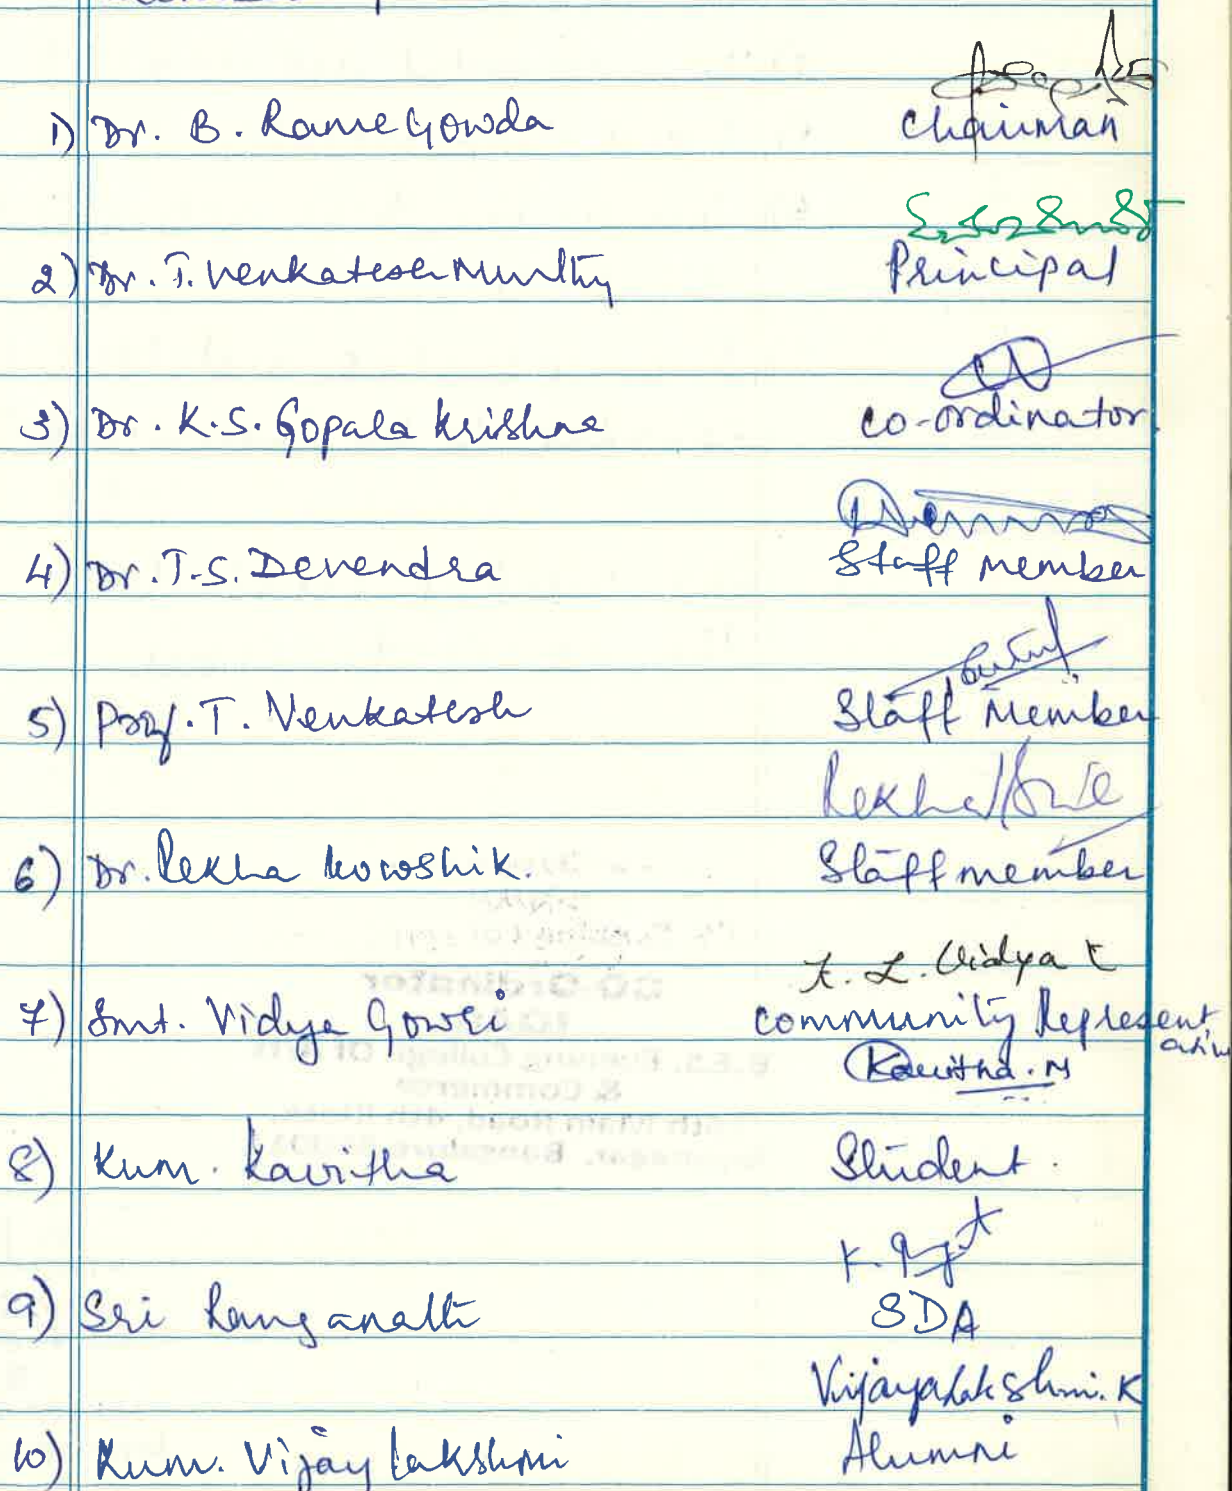 1) Dr. B. Rame Gowda Chairman
2) Dr. T. Venkatesh Murthy Principal
3) Dr. K.S. Gopala Krishna co-ordinator
4) Dr. T.S. Devendra Staff Member
5) Prof. T. Venkatesh Staff Member
Rekha
6) Dr. Rekha Kowshik. Staff member
K. L. Vidya
7) Smt. Vidya Gowri Community Represent
ative
Kavitha. M
8) Kum. Kavitha Student.
K.
9) Sri Ranganath SDA
Vijayalakshmi. K
10) Kum. Vijay lakshmi Alumni